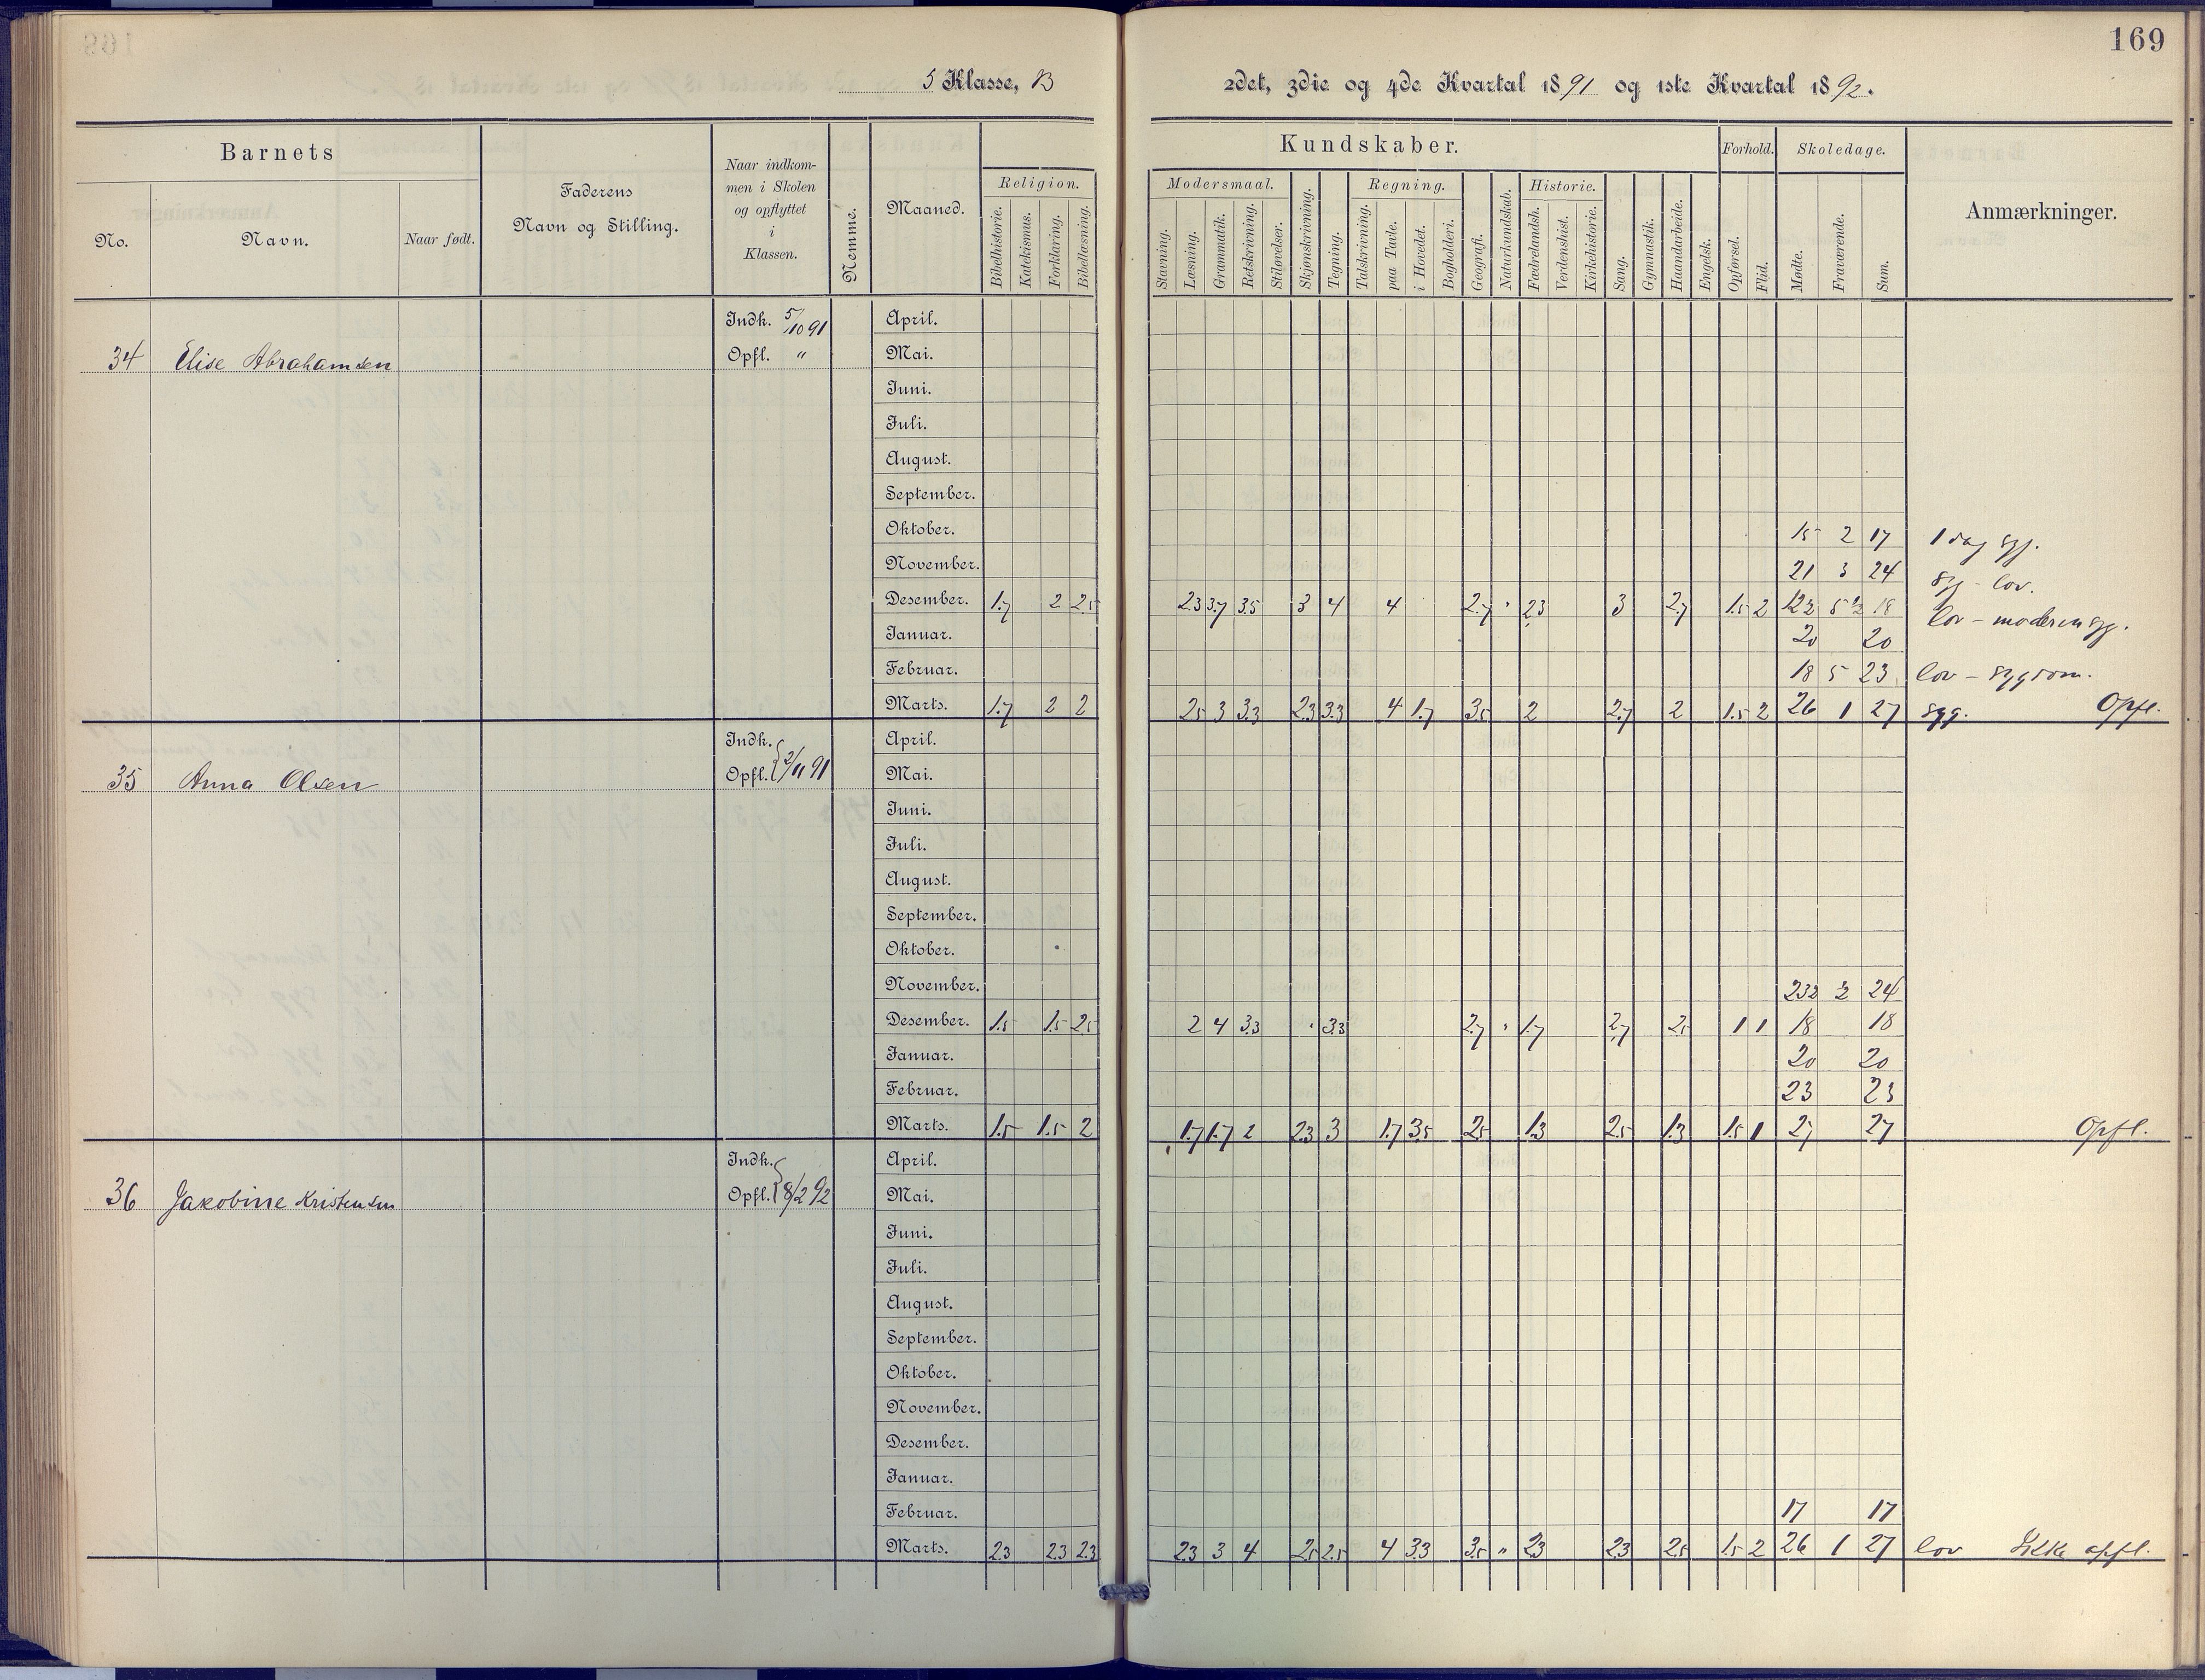 169
5 Klasse, B 2det, 3die og 4de Kvartal 1891 og 1ste Kvartal 1892.
Barnets
No.
Navn.
Naar født.
Faderens
Navn og Stilling.
Naar indkom-
men i Skolen
og opflyttet
i
Klassen.
Nemme.
Maaned.
Kundskaber.
Religion.
Bibelhistorie.
Katekismus.
Forklaring.
Bibellæsning.
Modersmaal.
Stavning.
Læsning.
Grammatik.
Retskrivning.
Stiløvelser.
Skjønskrivning.
Tegning.
Regning.
Talskrivning.
paa Tavle.
i Hovedet.
Bogholderi.
Geografi.
Naturkundskab.
Historie.
Fædrelandsh.
Verdenshist.
Kirkehistorie.
Sang.
Gymnastik.
Haandarbeide.
Engelsk.
Forhold.
Opførsel.
Flid.
Skoledage.
Mødte.
Fraværende.
Sum.
Anmærkninger.
34 Elise Abrahamsen
Indk. 5/10 91
Opfl. "
April.
Mai.
Juni.
Juli.
August.
September.
Oktober. 15 2 17 1 dag syg.
November. 21 3 24 syg - lov.
Desember. 1.7 2 2.5 2.3 3.7 3.5 3 4 4 2.7 " 2.3 3 2.7 1.5 2 12½ 5½ 18 lov - moderen syg.
Januar. 20 20
Februar. 18 5 23 lov - sygdom.
Marts. 1.7 2 2 2.5 3 3.3 2.3 3.3 4 1.7 3.5 2 2.7 2 1.5 2 26 1 27 syg. Opfl.
35 Anna Olsen
Indk.
Opfl. 2/11 91
April.
Mai.
Juni.
Juli.
August.
September.
Oktober.
November. 23½ ½ 24
Desember. 1.5 1.5 2.5 2 4 3.3 3.3 2.7 " 1.7 2.7 2.5 1 1 18 18
Januar. 20 20
Februar. 23 23
Marts. 1.5 1.5 2 1.7 1.7 2 2.3 3 1.7 3.5 2.5 1.3 2.5 1.3 1.5 1 27 27 Opfl.
36 Jakobine Kristensen
Indk.
Opfl. 8/2 92
April.
Mai.
Juni.
Juli.
August.
September.
Oktober.
November.
Desember.
Januar.
Februar. 17 17
Marts. 2.3 2.3 2.3 2.3 3 4 2.5 2.5 4 3.3 3.5 " 2.3 2.3 2.5 1.5 2 26 1 27 lov Ikke opfl.